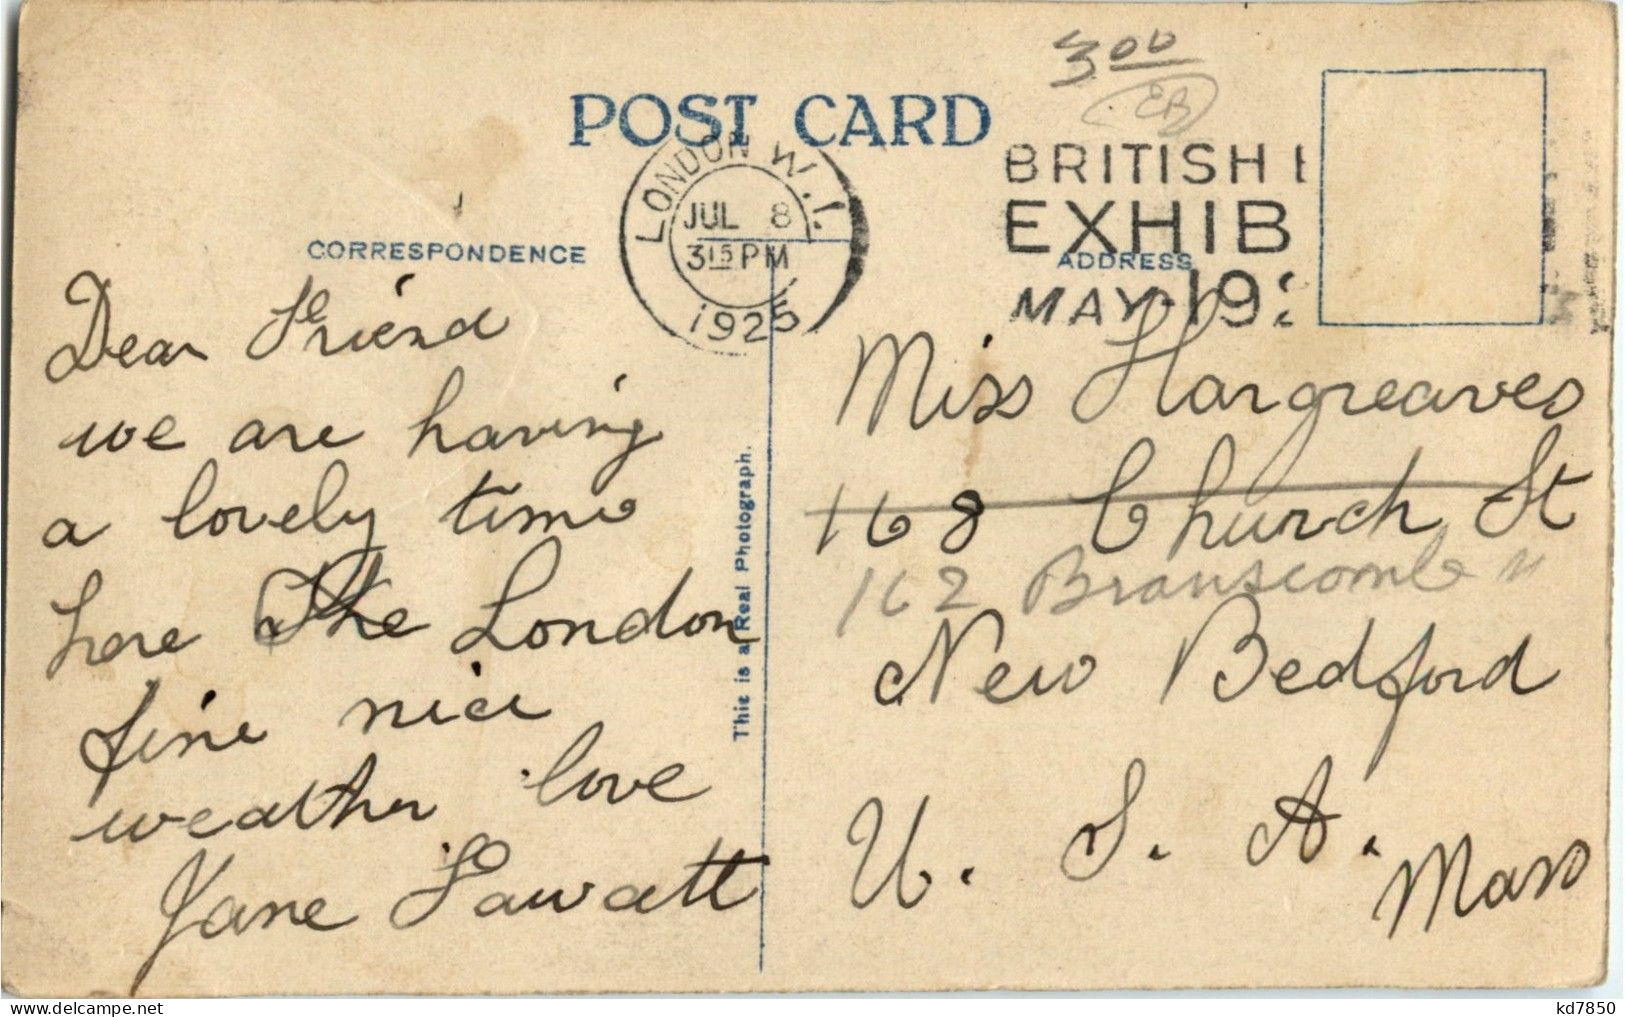 3 00
EB
POST CARD
LONDON W.1.
JUL 8
3 15 PM
1925
BRITISH
EXHIB
MAY-
CORRESPONDENCE
ADDRESS
Dear Friend
we are having
a lovely time
here The London
fine nice
weather love
Jane Fawcatt
This is a Real Photograph.
Miss Hargreaves
168 Church St
162 Branscomb "
New Bedford
U. S. A.
Mass
kd7850